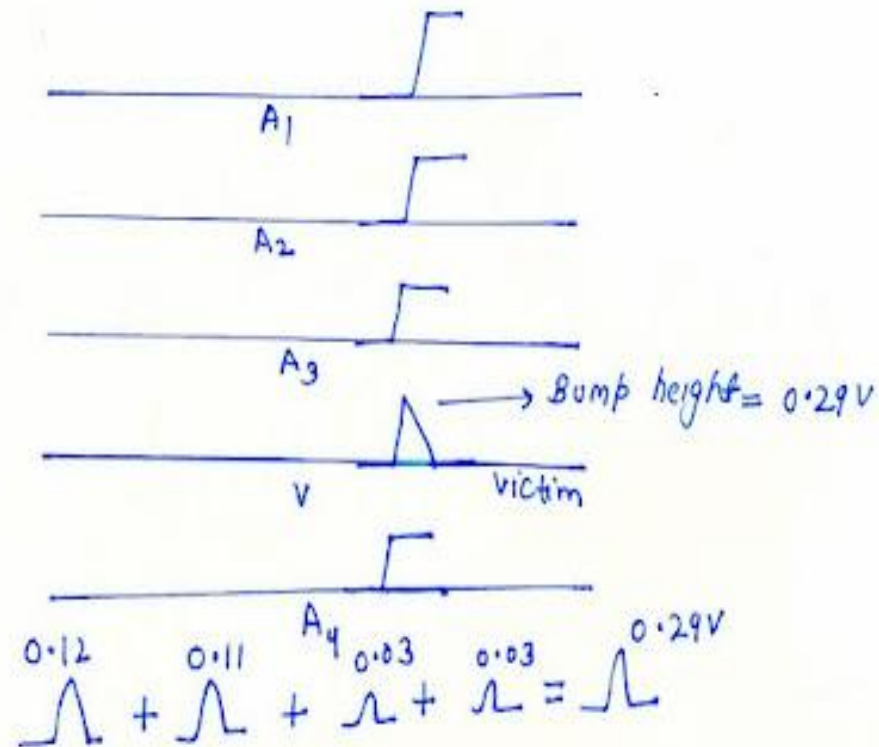 A1
A2
A3
→ Bump height = 0.29V
V victim
A4
0.12 0.11 0.03 0.03 0.29V
+ + + =